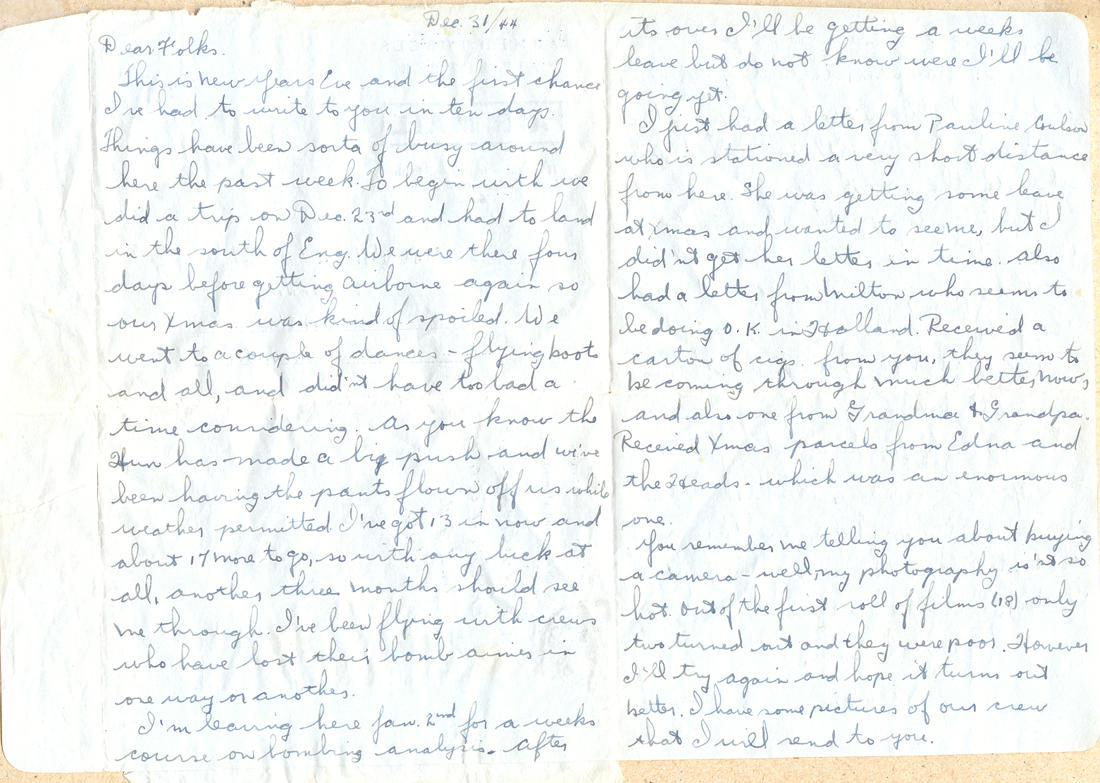 Dec. 31/44
Dear Folks.
This is New Years Eve and the first chance
I've had to write to you in ten days.
Things have been sorta of busy around
here the past week. To begin with we
did a trip on Dec. 23rd and had to land
in the south of Eng. We were there four
days before getting airborne again so
our Xmas was kind of spoiled. We
went to a couple of dances - flying boots
and all, and didn't have too bad a
time considering. As you know the
Hun has made a big push and we've
been having the pants flown off us while
weather permitted. I've got 13 in now and
about 17 more to go, so with any luck at
all, another three months should see
me through. I've been flying with crews
who have lost their bomb aimers in
one way or another.
I'm leaving here Jan. 2nd for a weeks
course on bombing analysis. After
its over I'll be getting a weeks
leave but do not know were I'll be
going yet.
I just had a letter from Pauline Coulson
who is stationed a very short distance
from here. She was getting some leave
at Xmas and wanted to see me, but I
did'nt get her letter in time. Also
had a letter from Milton who seems to
be doing O.K. in Holland. Received a
carton of cigs. from you, they seem to
be coming through much better now,
and also one from Grandma & Grandpa.
Received Xmas parcels from Edna and
the Heads - which was an enormous
one.
You remember me telling you about buying
a camera - well, my photography is'nt so
hot. Out of the first roll of films (18) only
two turned out and they were poor. However
I'll try again and hope it turns out
better. I have some pictures of our crew
that I will send to you.